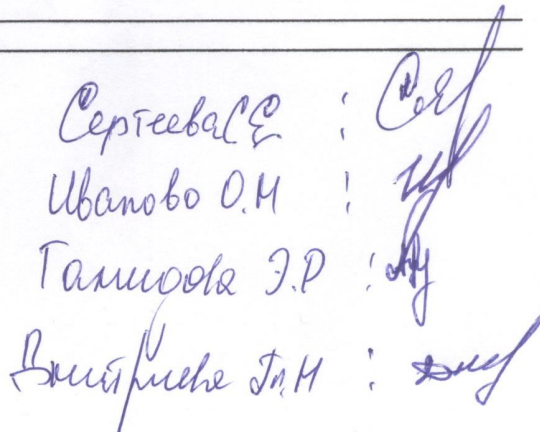 Сергеева С Е :
Иваново О.Н :
Гамидова Э.Р :
Дмитриева Т.Н :